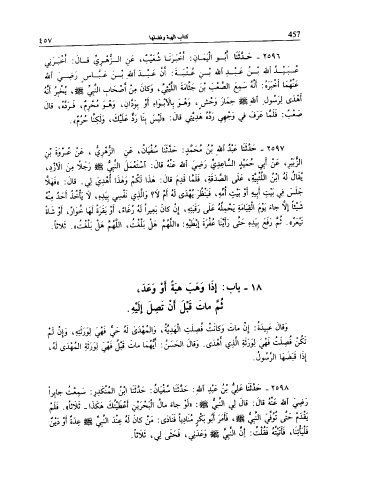 457 كتاب الهبة وفضلها ٤٥٧
٢٥٩٦ - حَدَّثَنَا أَبُو الْيَمَانِ: أَخْبَرَنَا شُعَيْبٌ، عَنِ الزُّهْرِيِّ قَالَ: أَخْبَرَنِي
عُبَيْدُ اللهِ بْنُ عَبْدِ اللهِ بْنِ عُتْبَةَ: أَنَّ عَبْدَ اللهِ بْنَ عَبَّاسٍ رَضِيَ اللهُ
عَنْهُمَا أَخْبَرَهُ: أَنَّهُ سَمِعَ الصَّعْبَ بْنَ جَثَّامَةَ اللَّيْثِيَّ، وَكَانَ مِنْ أَصْحَابِ النَّبِيِّ ﷺ، يُخْبِرُ أَنَّهُ
أَهْدَى لِرَسُولِ اللهِ ﷺ حِمَارَ وَحْشٍ، وَهُوَ بِالْأَبْوَاءِ أَوْ بِوَدَّانَ، وَهُوَ مُحْرِمٌ، فَرَدَّهُ، قَالَ
صَعْبٌ: فَلَمَّا عَرَفَ فِي وَجْهِي رَدَّهُ هَدِيَّتِي قَالَ: «لَيْسَ بِنَا رَدٌّ عَلَيْكَ، وَلَكِنَّا حُرُمٌ».
٢٥٩٧ - حَدَّثَنَا عَبْدُ اللهِ بْنُ مُحَمَّدٍ: حَدَّثَنَا سُفْيَانُ، عَنِ الزُّهْرِيِّ، عَنْ عُرْوَةَ بْنِ
الزُّبَيْرِ، عَنْ أَبِي حُمَيْدٍ السَّاعِدِيِّ رَضِيَ اللهُ عَنْهُ قَالَ: اسْتَعْمَلَ النَّبِيُّ ﷺ رَجُلًا مِنَ الْأَزْدِ،
يُقَالُ لَهُ ابْنُ اللُّتْبِيَّةِ، عَلَى الصَّدَقَةِ، فَلَمَّا قَدِمَ قَالَ: هَذَا لَكُمْ وَهَذَا أُهْدِيَ لِي. قَالَ: «فَهَلَّا
جَلَسَ فِي بَيْتِ أَبِيهِ أَوْ بَيْتِ أُمِّهِ، فَيَنْظُرَ يُهْدَى لَهُ أَمْ لَا؟ وَالَّذِي نَفْسِي بِيَدِهِ، لَا يَأْخُذُ أَحَدٌ مِنْهُ
شَيْئًا إِلَّا جَاءَ يَوْمَ الْقِيَامَةِ يَحْمِلُهُ عَلَى رَقَبَتِهِ، إِنْ كَانَ بَعِيرًا لَهُ رُغَاءٌ، أَوْ بَقَرَةً لَهَا خُوَارٌ، أَوْ شَاةً
تَيْعَرُ». ثُمَّ رَفَعَ بِيَدِهِ حَتَّى رَأَيْنَا عُفْرَةَ إِبْطَيْهِ: «اللَّهُمَّ هَلْ بَلَّغْتُ، اللَّهُمَّ هَلْ بَلَّغْتُ». ثَلَاثًا.
١٨ - باب: إِذَا وَهَبَ هِبَةً أَوْ وَعَدَ،
ثُمَّ مَاتَ قَبْلَ أَنْ تَصِلَ إِلَيْهِ.
وَقَالَ عَبِيدَةُ: إِنْ مَاتَ وَكَانَتْ فُصِلَتِ الْهَدِيَّةُ، وَالْمُهْدَى لَهُ حَيٌّ فَهِيَ لِوَرَثَتِهِ، وَإِنْ لَمْ
تَكُنْ فُصِلَتْ فَهِيَ لِوَرَثَةِ الَّذِي أَهْدَى. وَقَالَ الْحَسَنُ: أَيُّهُمَا مَاتَ قَبْلُ فَهِيَ لِوَرَثَةِ الْمُهْدَى لَهُ،
إِذَا قَبَضَهَا الرَّسُولُ.
٢٥٩٨ - حَدَّثَنَا عَلِيُّ بْنُ عَبْدِ اللهِ: حَدَّثَنَا سُفْيَانُ: حَدَّثَنَا ابْنُ الْمُنْكَدِرِ: سَمِعْتُ جَابِرًا
رَضِيَ اللهُ عَنْهُ قَالَ: قَالَ لِي النَّبِيُّ ﷺ: «لَوْ جَاءَ مَالُ الْبَحْرَيْنِ أَعْطَيْتُكَ هَكَذَا - ثَلَاثًا». فَلَمْ
يَقْدَمْ حَتَّى تُوُفِّيَ النَّبِيُّ ﷺ، فَأَمَرَ أَبُو بَكْرٍ مُنَادِيًا فَنَادَى: مَنْ كَانَ لَهُ عِنْدَ النَّبِيِّ ﷺ عِدَةٌ أَوْ دَيْنٌ
فَلْيَأْتِنَا، فَأَتَيْتُهُ فَقُلْتُ: إِنَّ النَّبِيَّ ﷺ وَعَدَنِي، فَحَثَى لِي، ثَلَاثًا.